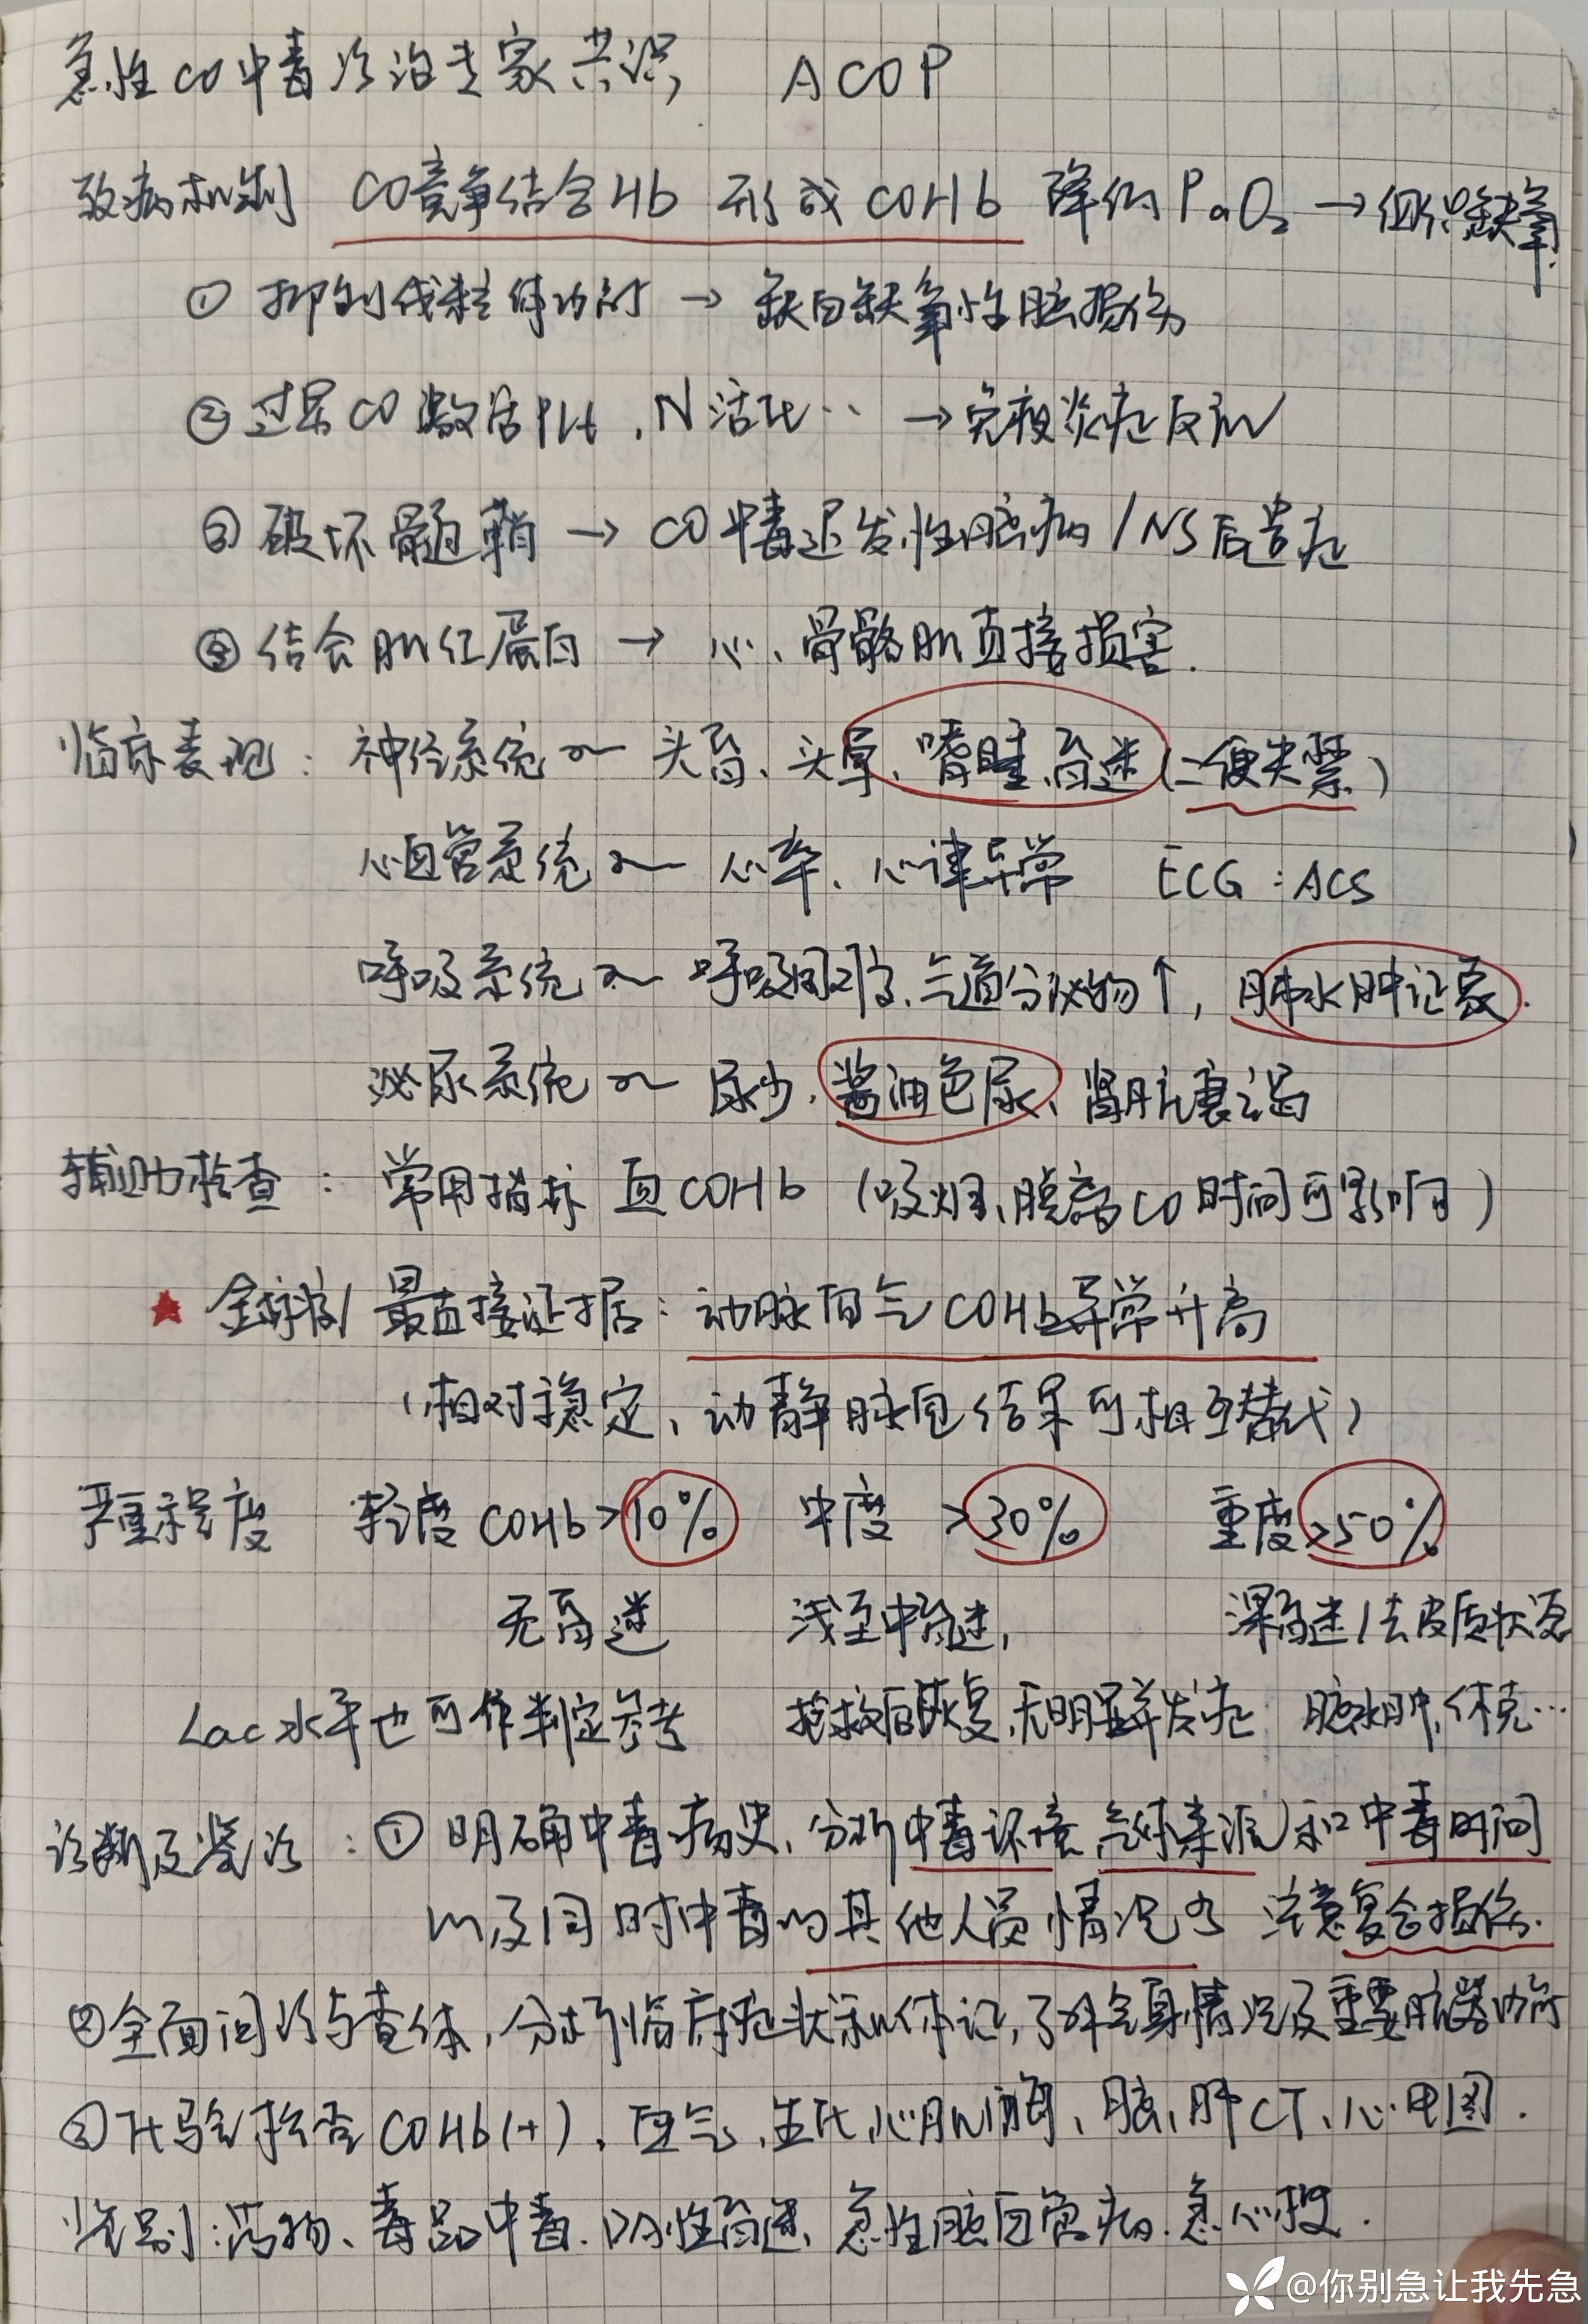 急性CO中毒诊治专家共识 ACOP
致病机制 CO竞争结合Hb 形成COHb 降低PaO₂ → 组织缺氧.
① 抑制线粒体功能 → 缺血缺氧性脑损伤
② 过量CO激活PLt, N活化… → 免疫炎症反应
③ 破坏髓鞘 → CO中毒迟发性脑病/NS后遗症
④ 结合肌红蛋白 → 心、骨骼肌直接损害.
临床表现: 神经系统~ 头昏、头晕、嗜睡、昏迷(二便失禁)
心血管系统~ 心率、心律异常 ECG: ACS
呼吸系统~ 呼吸困难、气道分泌物↑, 肺水肿征象.
泌尿系统~ 尿少、酱油色尿、肾脏衰竭
辅助检查: 常用指标 血COHb (吸烟、脱离CO时间可影响)
★ 金标准/最直接证据: 动脉血气COHb异常升高
(相对稳定、动静脉血结果可相互替代)
严重程度 轻度COHb>10% 中度 >30% 重度>50%
无昏迷 浅至中昏迷, 深昏迷/去皮质状态
Lac水平也可作判定参考 抢救后恢复,无明显并发症 脑水肿,休克…
诊断及鉴诊: ① 明确中毒病史、分析中毒环境、气体来源)和中毒时间
以及同时中毒的其他人员情况 注意复合损伤.
② 全面问诊与查体, 分析临床症状和体征, 了解全身情况及重要脏器功能
③ 化验检查 COHb(+)、血气、生化、心肌酶、脑、肺CT、心电图.
鉴别: 药物、毒品中毒. DM性昏迷、急性脑血管病. 急心梗.
@你别急让我先急